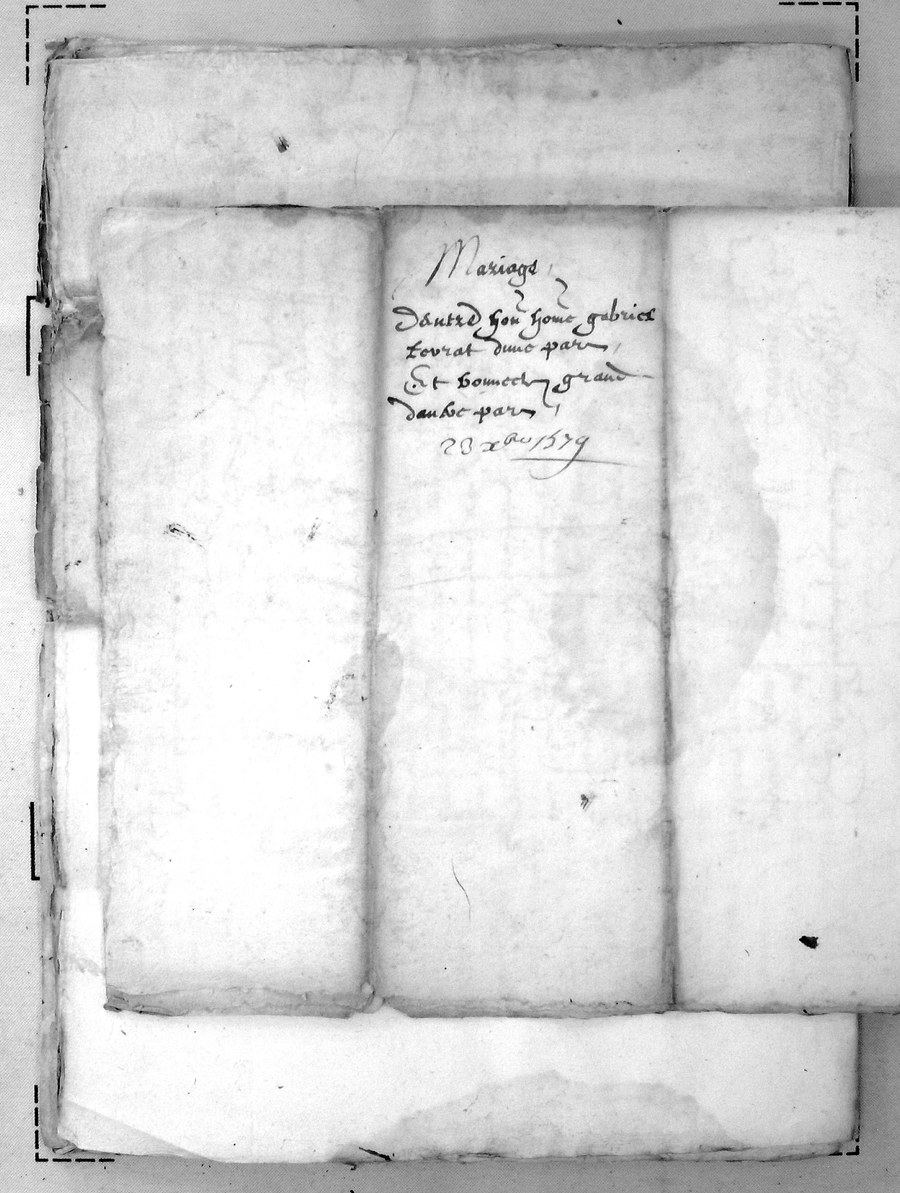 Mariage
Dentre hon home gabriel
tevrat dune part
Et bonnect grand
daulte part
23 xbre 1579